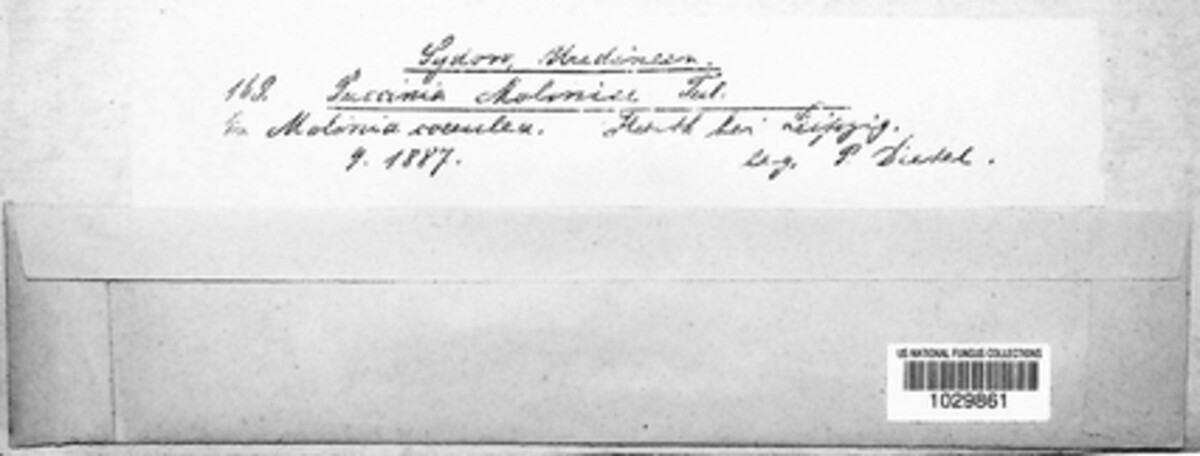 Sydow, Uredineen.
168. Puccinia Moliniae Tul.
Molinia coerulea. bei Leipzig.
9. 1887. leg. P. Dietel.
US NATIONAL FUNGUS COLLECTIONS
1029861